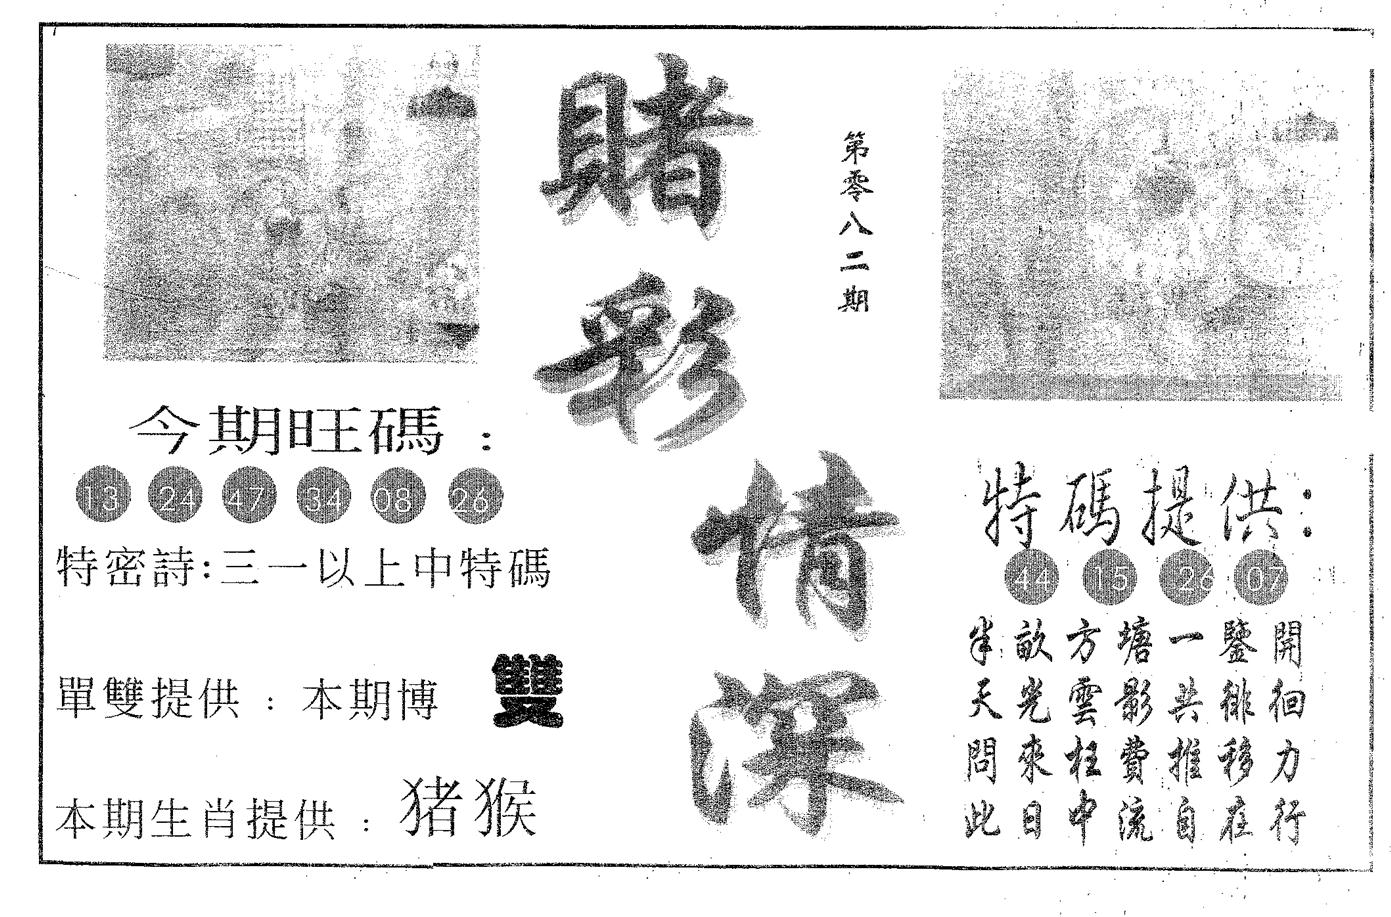 賭彩情深
第零八二期
今期旺碼：
13 24 47 34 08 26
特密詩:三一以上中特碼
單雙提供：本期博 雙
本期生肖提供：猪猴
特碼提供：
44 15 26 07
半畝方塘一鑒開
天光雲影共徘徊
問來枉費推移力
此日中流自在行